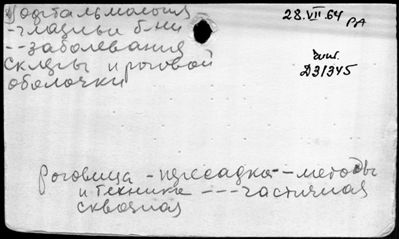 Офтальмология -
- глазные б-ни
-- заболевания
склеры и роговой
оболочки
28.VII.64
РА
дис.
Д31345
Роговица - пересадка -- методы
и техника --- частичная
сквозная